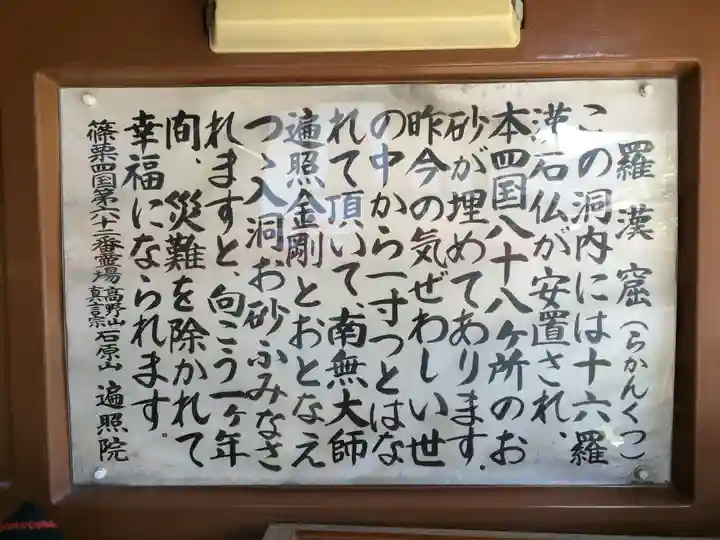 羅漢窟(らかんくつ)
この洞内には十六羅
漢石仏が安置され、
本四国八十八ヶ所のお
砂が埋めてあります。
昨今の気ぜわしい世
の中から一寸っとはな
れて頂いて、南無大師
遍照金剛とおとなえ
つゝ入洞お砂ふみなさ
れますと、向こう一ヶ年
間、災難を除かれて
幸福になられます。
篠栗四国第六十二番霊場高野山真言宗石原山遍照院